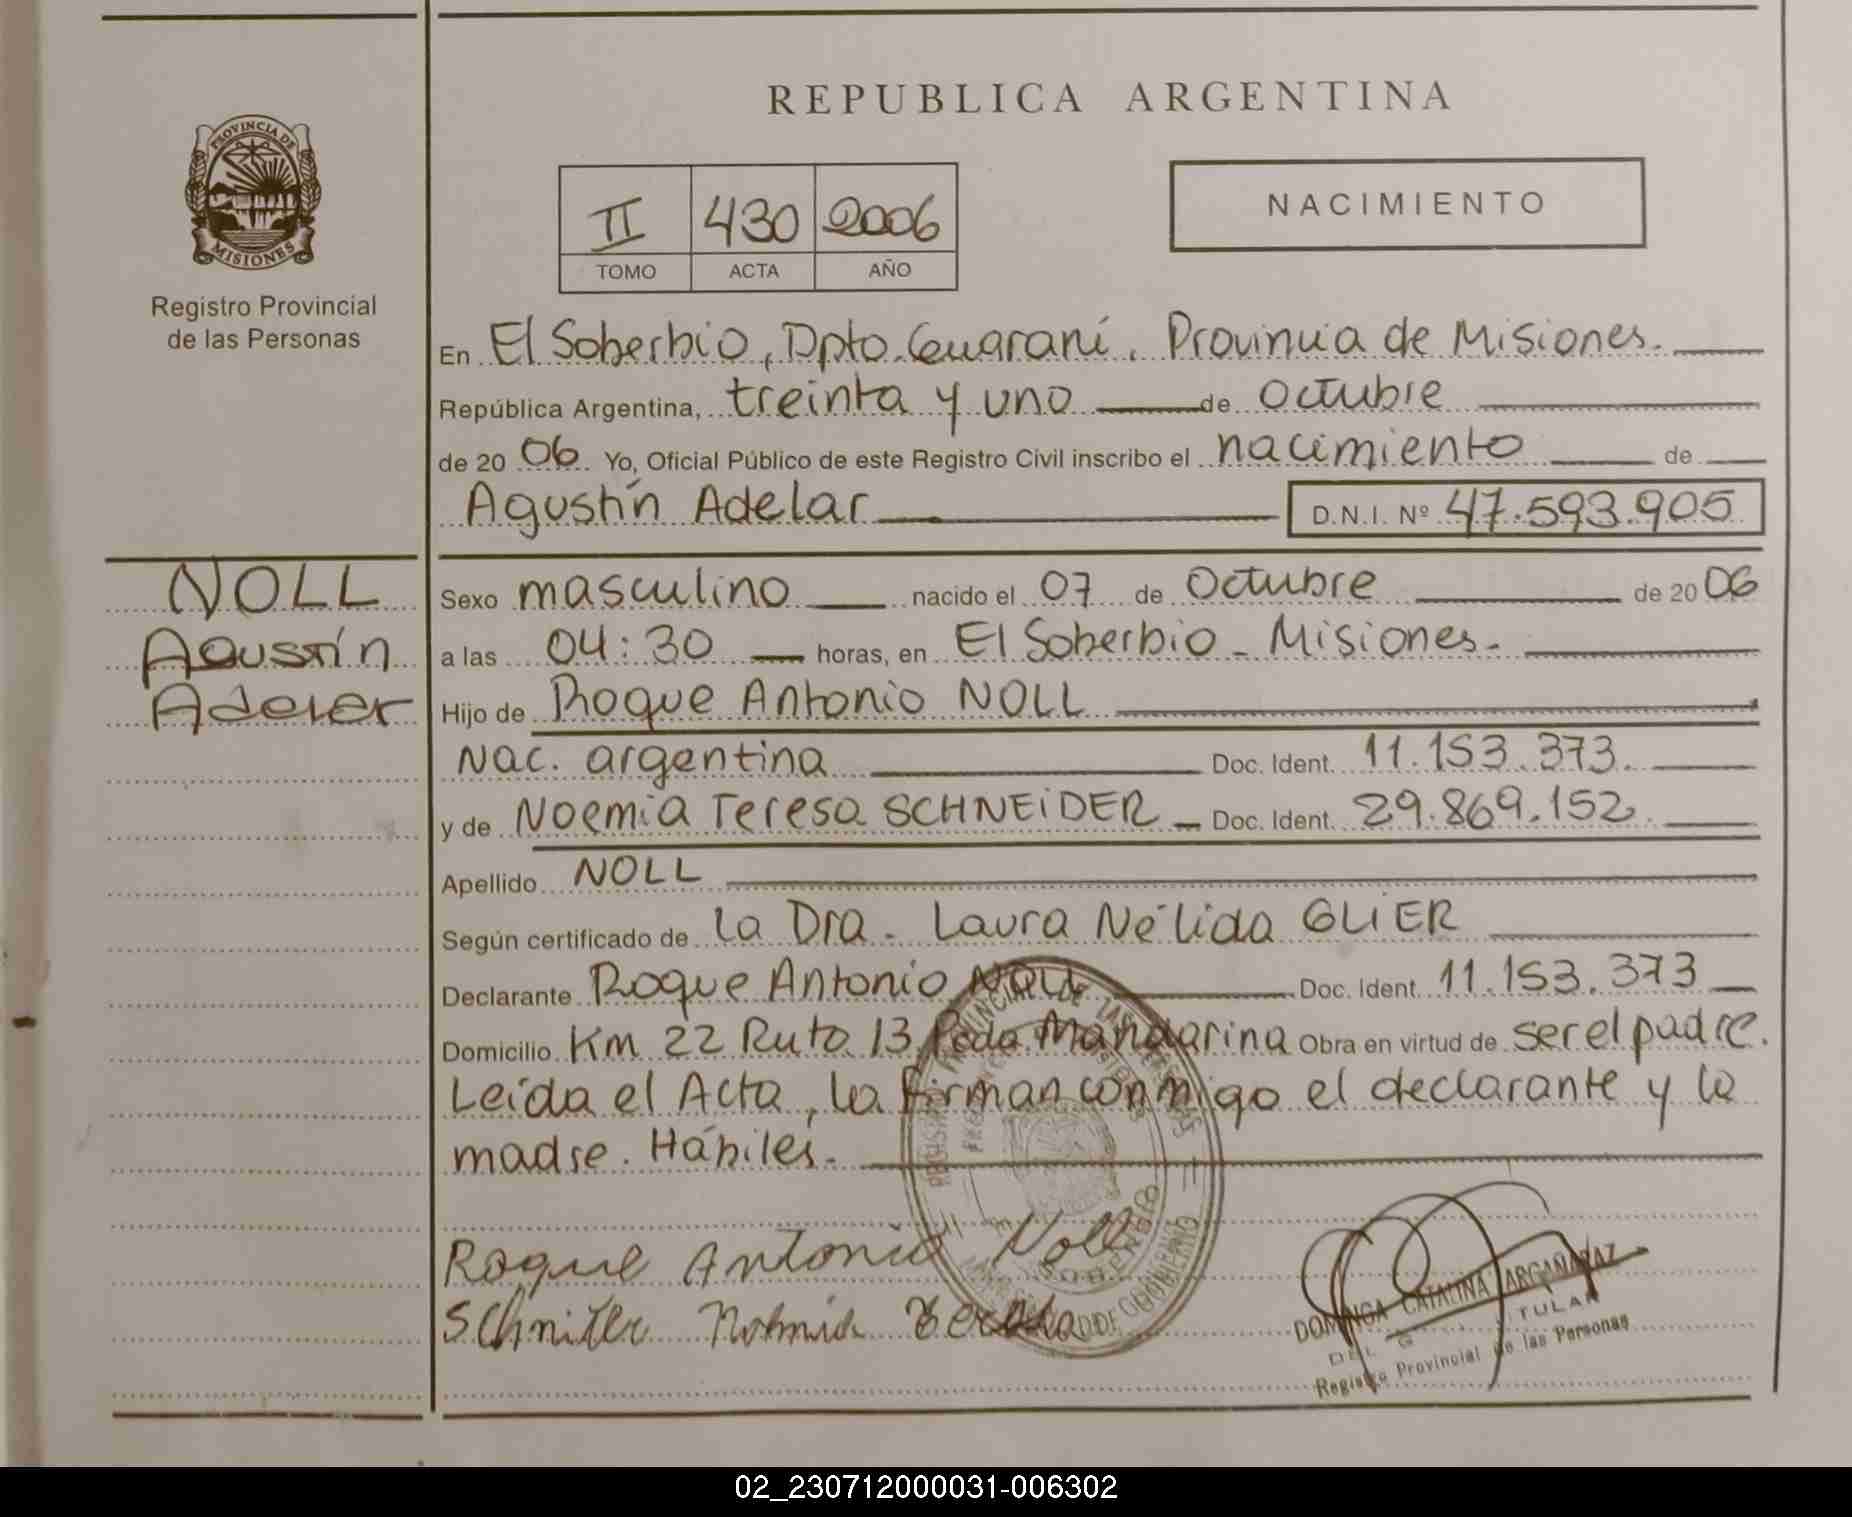 REPUBLICA ARGENTINA
PROVINCIA DE
MISIONES
Registro Provincial
de las Personas
II 430 2006
TOMO ACTA AÑO
NACIMIENTO
En El Soberbio, Dpto. Guaraní, Provincia de Misiones.
República Argentina, treinta y uno de octubre
de 2006 Yo, Oficial Público de este Registro Civil inscribo el nacimiento de
Agustín Adelar D.N.I. Nº 47.593.905
NOLL
Agustín
Adelar
Sexo masculino nacido el 07 de Octubre de 2006
a las 04:30 horas, en El Soberbio - Misiones.
Hijo de Roque Antonio NOLL
Nac. argentina Doc. Ident. 11.153.373.
y de Noemia Teresa SCHNEIDER Doc. Ident. 29.869.152.
Apellido NOLL
Según certificado de la Dra. Laura Nélida GLIER
Declarante Roque Antonio NOLL Doc. Ident. 11.153.373
Domicilio Km 22 Ruta 13 Pcda. Mandarina Obra en virtud de ser el padre.
Leída el Acta, la firman conmigo el declarante y la
madre. Hábiles.
Roque Antonio Noll
SOBERBIO
DOMINGA CATALINA ARGAÑARAZ
TULAR
Registro Provincial de las Personas
02_230712000031-006302